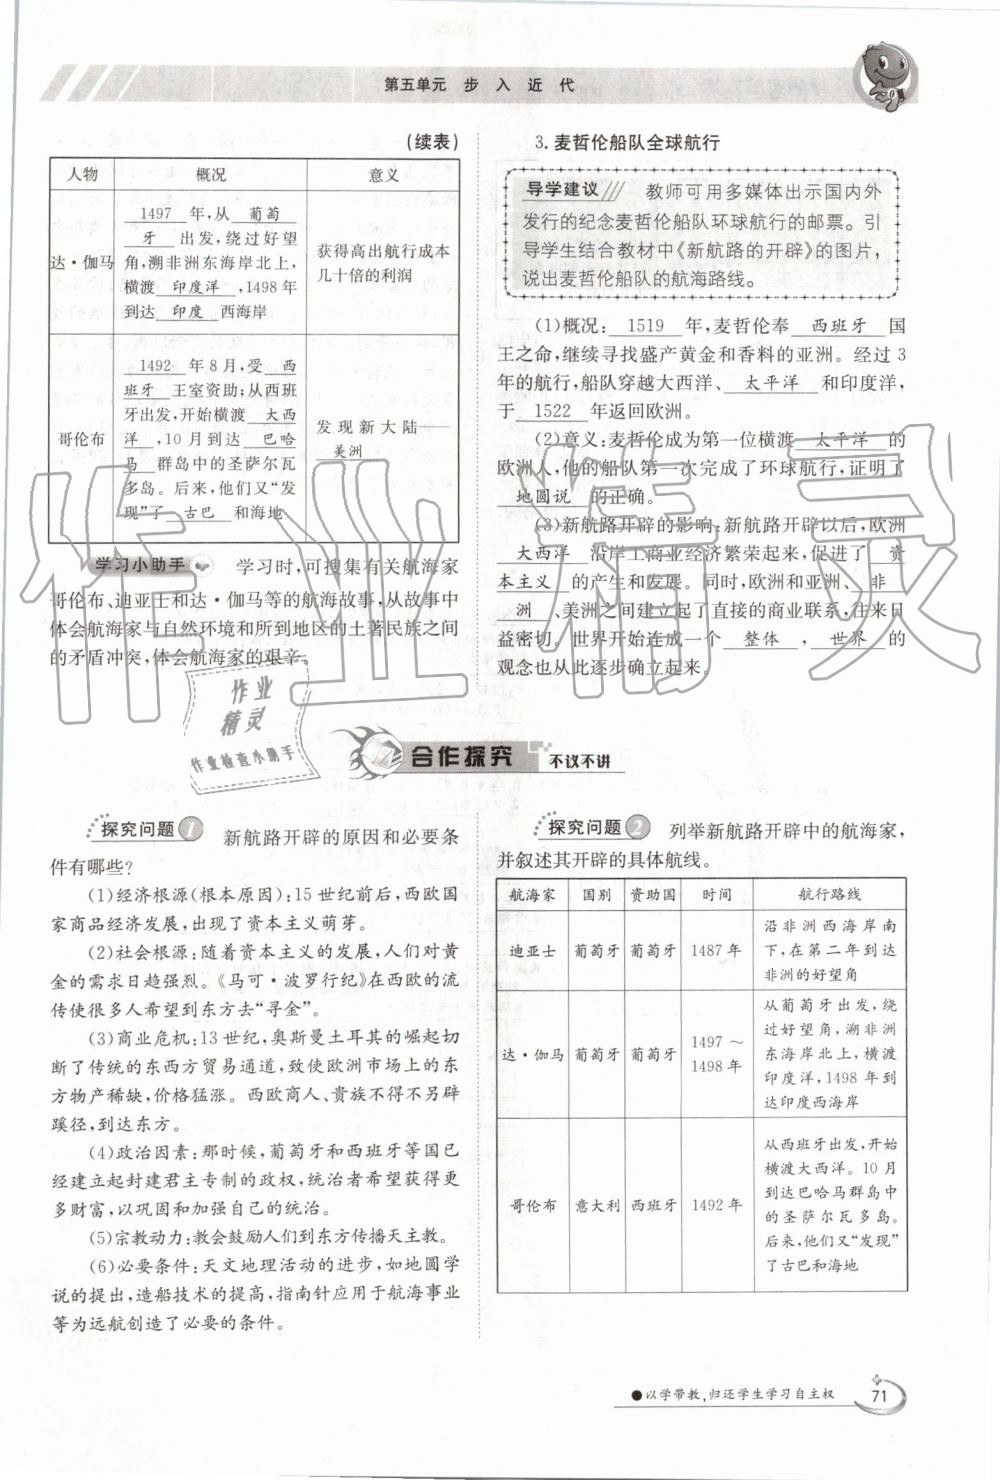 第五单元 步入近代
(续表)
人物 概况 意义
达·伽马
1497 年,从 葡萄
牙 出发,绕过好望
角,溯非洲东海岸北上,
横渡 印度洋 ,1498年
到达 印度 西海岸
获得高出航行成本
几十倍的利润
哥伦布
1492 年8月,受 西
班牙 王室资助;从西班
牙出发,开始横渡 大西
洋 ,10月到达 巴哈
马 群岛中的圣萨尔瓦
多岛。后来,他们又“发
现”了 古巴 和海地
发现新大陆——
美洲
学习小助手 学习时,可搜集有关航海家
哥伦布、迪亚士和达·伽马等的航海故事,从故事中
体会航海家与自然环境和所到地区的土著民族之间
的矛盾冲突,体会航海家的艰辛。
3.麦哲伦船队全球航行
导学建议 教师可用多媒体出示国内外
发行的纪念麦哲伦船队环球航行的邮票。引
导学生结合教材中《新航路的开辟》的图片,
说出麦哲伦船队的航海路线。
(1)概况: 1519 年,麦哲伦奉 西班牙 国
王之命,继续寻找盛产黄金和香料的亚洲。经过3
年的航行,船队穿越大西洋、 太平洋 和印度洋,
于 1522 年返回欧洲。
(2)意义:麦哲伦成为第一位横渡 太平洋 的
欧洲人,他的船队第一次完成了环球航行,证明了
地圆说 的正确。
(3)新航路开辟的影响:新航路开辟以后,欧洲
大西洋 沿岸工商业经济繁荣起来,促进了 资
本主义 的产生和发展。同时,欧洲和亚洲、 非
洲 、美洲之间建立起了直接的商业联系,往来日
益密切。世界开始连成一个 整体 , 世界 的
观念也从此逐步确立起来。
作业精灵
作业
精灵
作业检查小助手
合作探究 不议不讲
探究问题1 新航路开辟的原因和必要条
件有哪些?
(1)经济根源(根本原因):15世纪前后,西欧国
家商品经济发展,出现了资本主义萌芽。
(2)社会根源:随着资本主义的发展,人们对黄
金的需求日趋强烈。《马可·波罗行纪》在西欧的流
传使很多人希望到东方去“寻金”。
(3)商业危机:13世纪,奥斯曼土耳其的崛起切
断了传统的东西方贸易通道,致使欧洲市场上的东
方物产稀缺,价格猛涨。西欧商人、贵族不得不另辟
蹊径,到达东方。
(4)政治因素:那时候,葡萄牙和西班牙等国已
经建立起封建君主专制的政权,统治者希望获得更
多财富,以巩固和加强自己的统治。
(5)宗教动力:教会鼓励人们到东方传播天主教。
(6)必要条件:天文地理活动的进步,如地圆学
说的提出,造船技术的提高,指南针应用于航海事业
等为远航创造了必要的条件。
探究问题2 列举新航路开辟中的航海家,
并叙述其开辟的具体航线。
航海家 国别 资助国 时间 航行路线
迪亚士 葡萄牙 葡萄牙 1487年
沿非洲西海岸南
下,在第二年到达
非洲的好望角
达·伽马 葡萄牙 葡萄牙 1497～
1498年
从葡萄牙出发,绕
过好望角,溯非洲
东海岸北上,横渡
印度洋,1498年到
达印度西海岸
哥伦布 意大利 西班牙 1492年
从西班牙出发,开始
横渡大西洋。10月
到达巴哈马群岛中
的圣萨尔瓦多岛。
后来,他们又“发现”
了古巴和海地
●以学带教,归还学生学习自主权
71